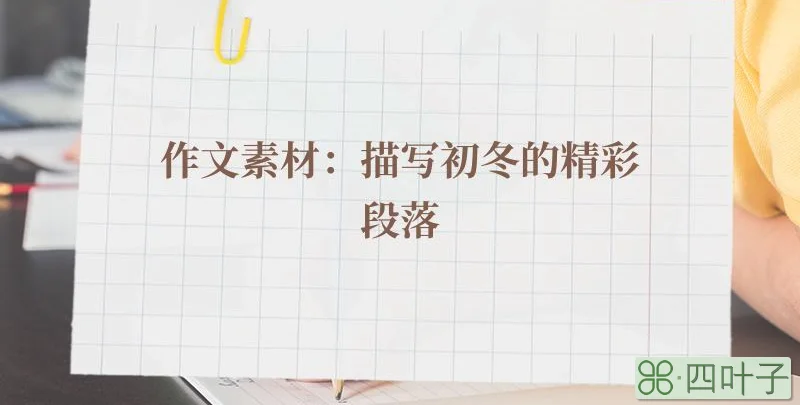 作文素材：描写初冬的精彩
段落
四叶子